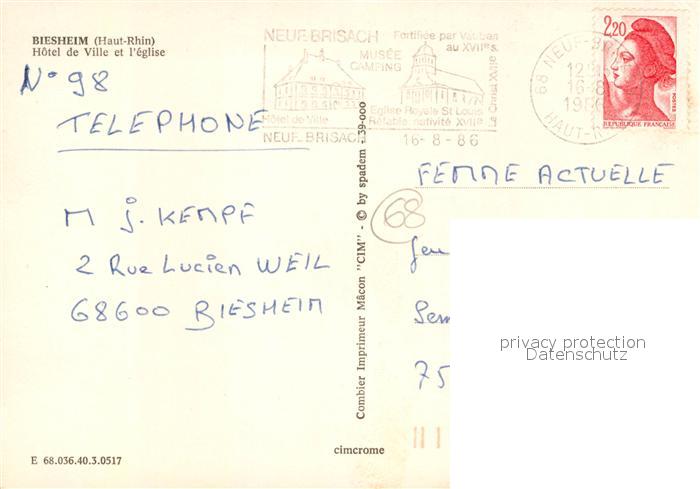 BIESHEIM (Haut-Rhin)
Hôtel de Ville et l'église
N° 98
TELEPHONE
M J. KEMPF
2 Rue Lucien WEIL
68600 BIESHEIM
E 68.036.40.3.0517
cimcrome
Combier Imprimeur Mâcon "CIM" - © by spadem - 139-000
NEUF BRISACH
Fortifiée par Vauban
au XVIIe s.
MUSÉE
CAMPING
Hôtel de Ville
Eglise Royale St Louis
Rétable nativité XVIIIe
Le Christ XVIIe
NEUF BRISACH
16-8-86
68 NEUF-BR
16-8
HAUT-R
2,20
POSTES
REPUBLIQUE FRANÇAISE
FEMME ACTUELLE
68
Jeu
Sem
75
privacy protection
Datenschutz